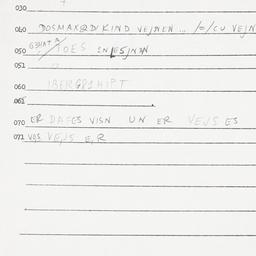 030
040 DOSMAKEDI KIND VEJNEN ... /=/CU VEJN
050 TOES INLESJNEN
051
060 IBERGRHIPT
061
070 ER DAFES VISN UN ER VEJS ES
071 VOS VEJS E,R